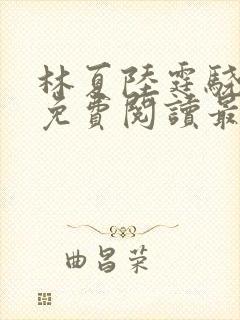 林夏陸霆驍
免費閱讀最
曲昌荣